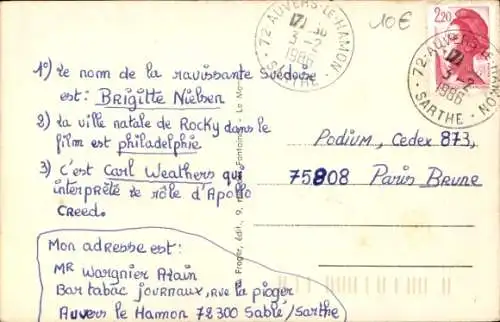 10€
2,20
72 AUVERS-LE-HAMON
3-2
1986
SARTHE
72 AUVERS-LE-HAMON
3-2
1986
SARTHE
1°) Le nom de la ravissante Suédoise
est: Brigitte Nielsen
2) la ville natale de Rocky dans le
film est philadelphie
3) c'est Carl Weathers qui
interprète le rôle d'Apollo
Creed.
Mon adresse est:
MR Wargnier Alain
Bar tabac journaux, rue la pioger
Auvers le Hamon 72300 Sablé/Sarthe
Podium, Cedex 873,
75808 Paris Brune